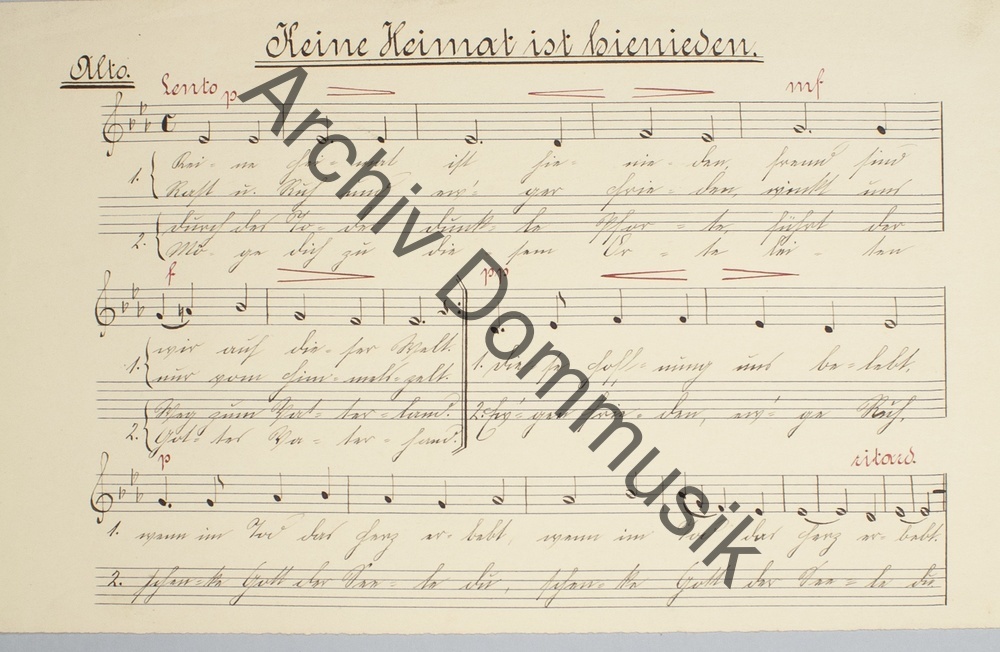 Keine Heimat ist hienieden.
Alto.
Lento p mf
1. Kei - ne Hei - mat ist hie - nie - den, fremd sind
Rast u. Ruh und ew' - ger Frie - den, winkt uns
2. Durch des To - des dunk - le Pfor - te, führt der
Mö - ge dich zu die sem Or - te lei - ten
f pp
1. wir auf die - ser Welt. 1. Die se Hoff - nung uns be - lebt,
nur vom Him - mels - zelt.
Weg zum Va - ter - land. 2. Ew' - gen Frie - den, ew' - ge Ruh,
2. Got - tes Va - ter - hand.
p ritard.
1. wenn im Tod das Herz er - bebt, wenn im Tod das Herz er - bebt.
2. schen - ke Gott der See - le du, schen - ke Gott der See - le du
Archiv Dommusik